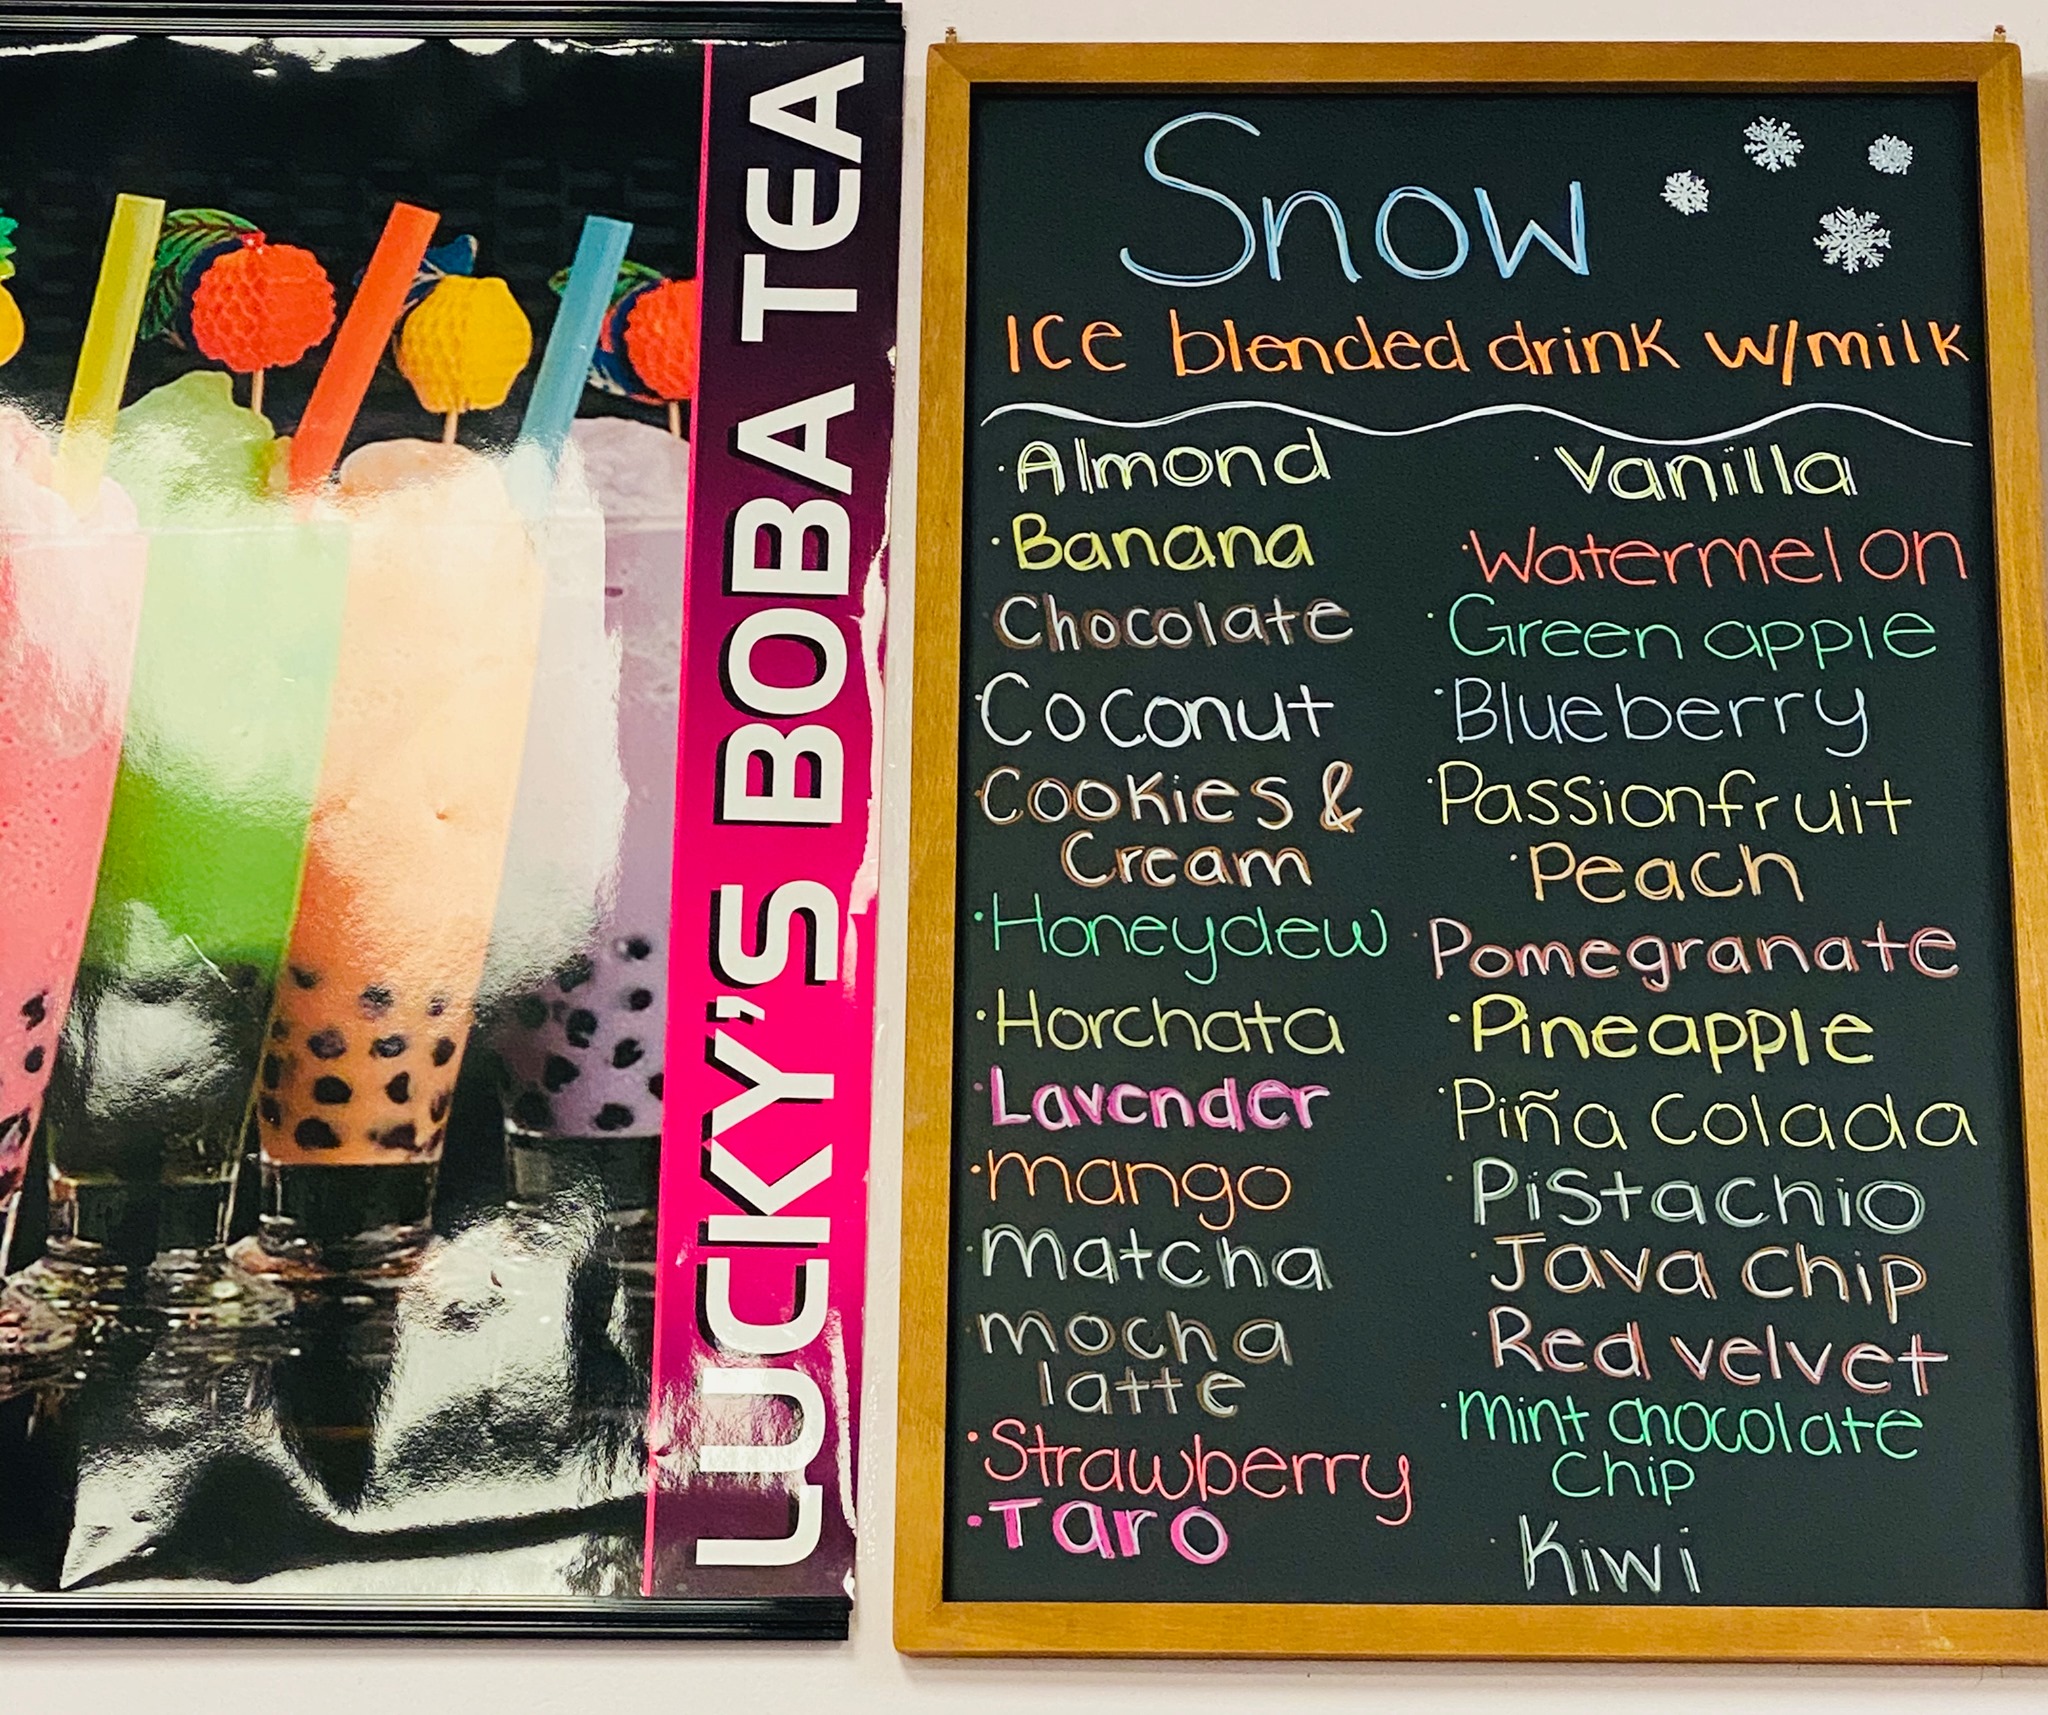 LUCKY'S BOBA TEA
Snow
Ice blended drink w/milk
Almond
Banana
Chocolate
Coconut
Cookies &
Cream
Honeydew
Horchata
Lavender
mango
matcha
mocha
latte
Strawberry
Taro
Vanilla
Watermelon
Green apple
Blueberry
Passionfruit
Peach
Pomegranate
Pineapple
Piña Colada
Pistachio
Java Chip
Red velvet
mint chocolate
Chip
Kiwi